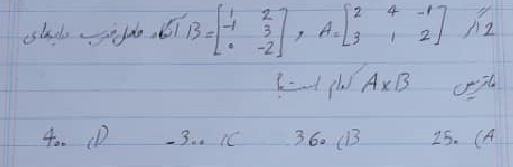 2 اگر A=[2 4 -1 / 3 1 2] و B=[1 2 / -1 3 / 0 -2] آنگاه حاصل ضرب درایه‌های
ماتریس A×B کدام است؟
A) 250 B) 360 C) -300 D) 400